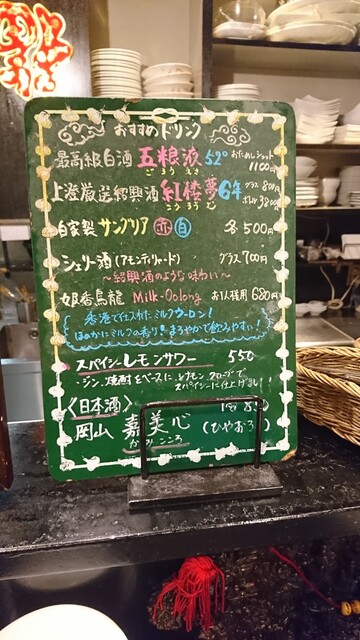 おすすめドリンク
最高級白酒 五粮液 52° お試しショット 1100円
ごろうえき
上澄厳選紹興酒 紅楼夢 6年 グラス 800円 ボトル 3200
こうろうむ
自家製 サングリア 赤 白 各500円
シェリー酒(アモンティリャード) グラス 700円
〜紹興酒のような味わい〜
奶香烏龍 Milk-Oolong お1人様用 680円
香港で仕入れたミルクウーロン!
ほのかにミルクの香り!まろやかで飲みやすい!
スパイシーレモンサワー 550
・ジン、焼酎をベースに、レモン、クローブで
スパイシーに仕上げまし
〈日本酒〉
岡山 嘉美心 (ひやおろ)
かみこころ